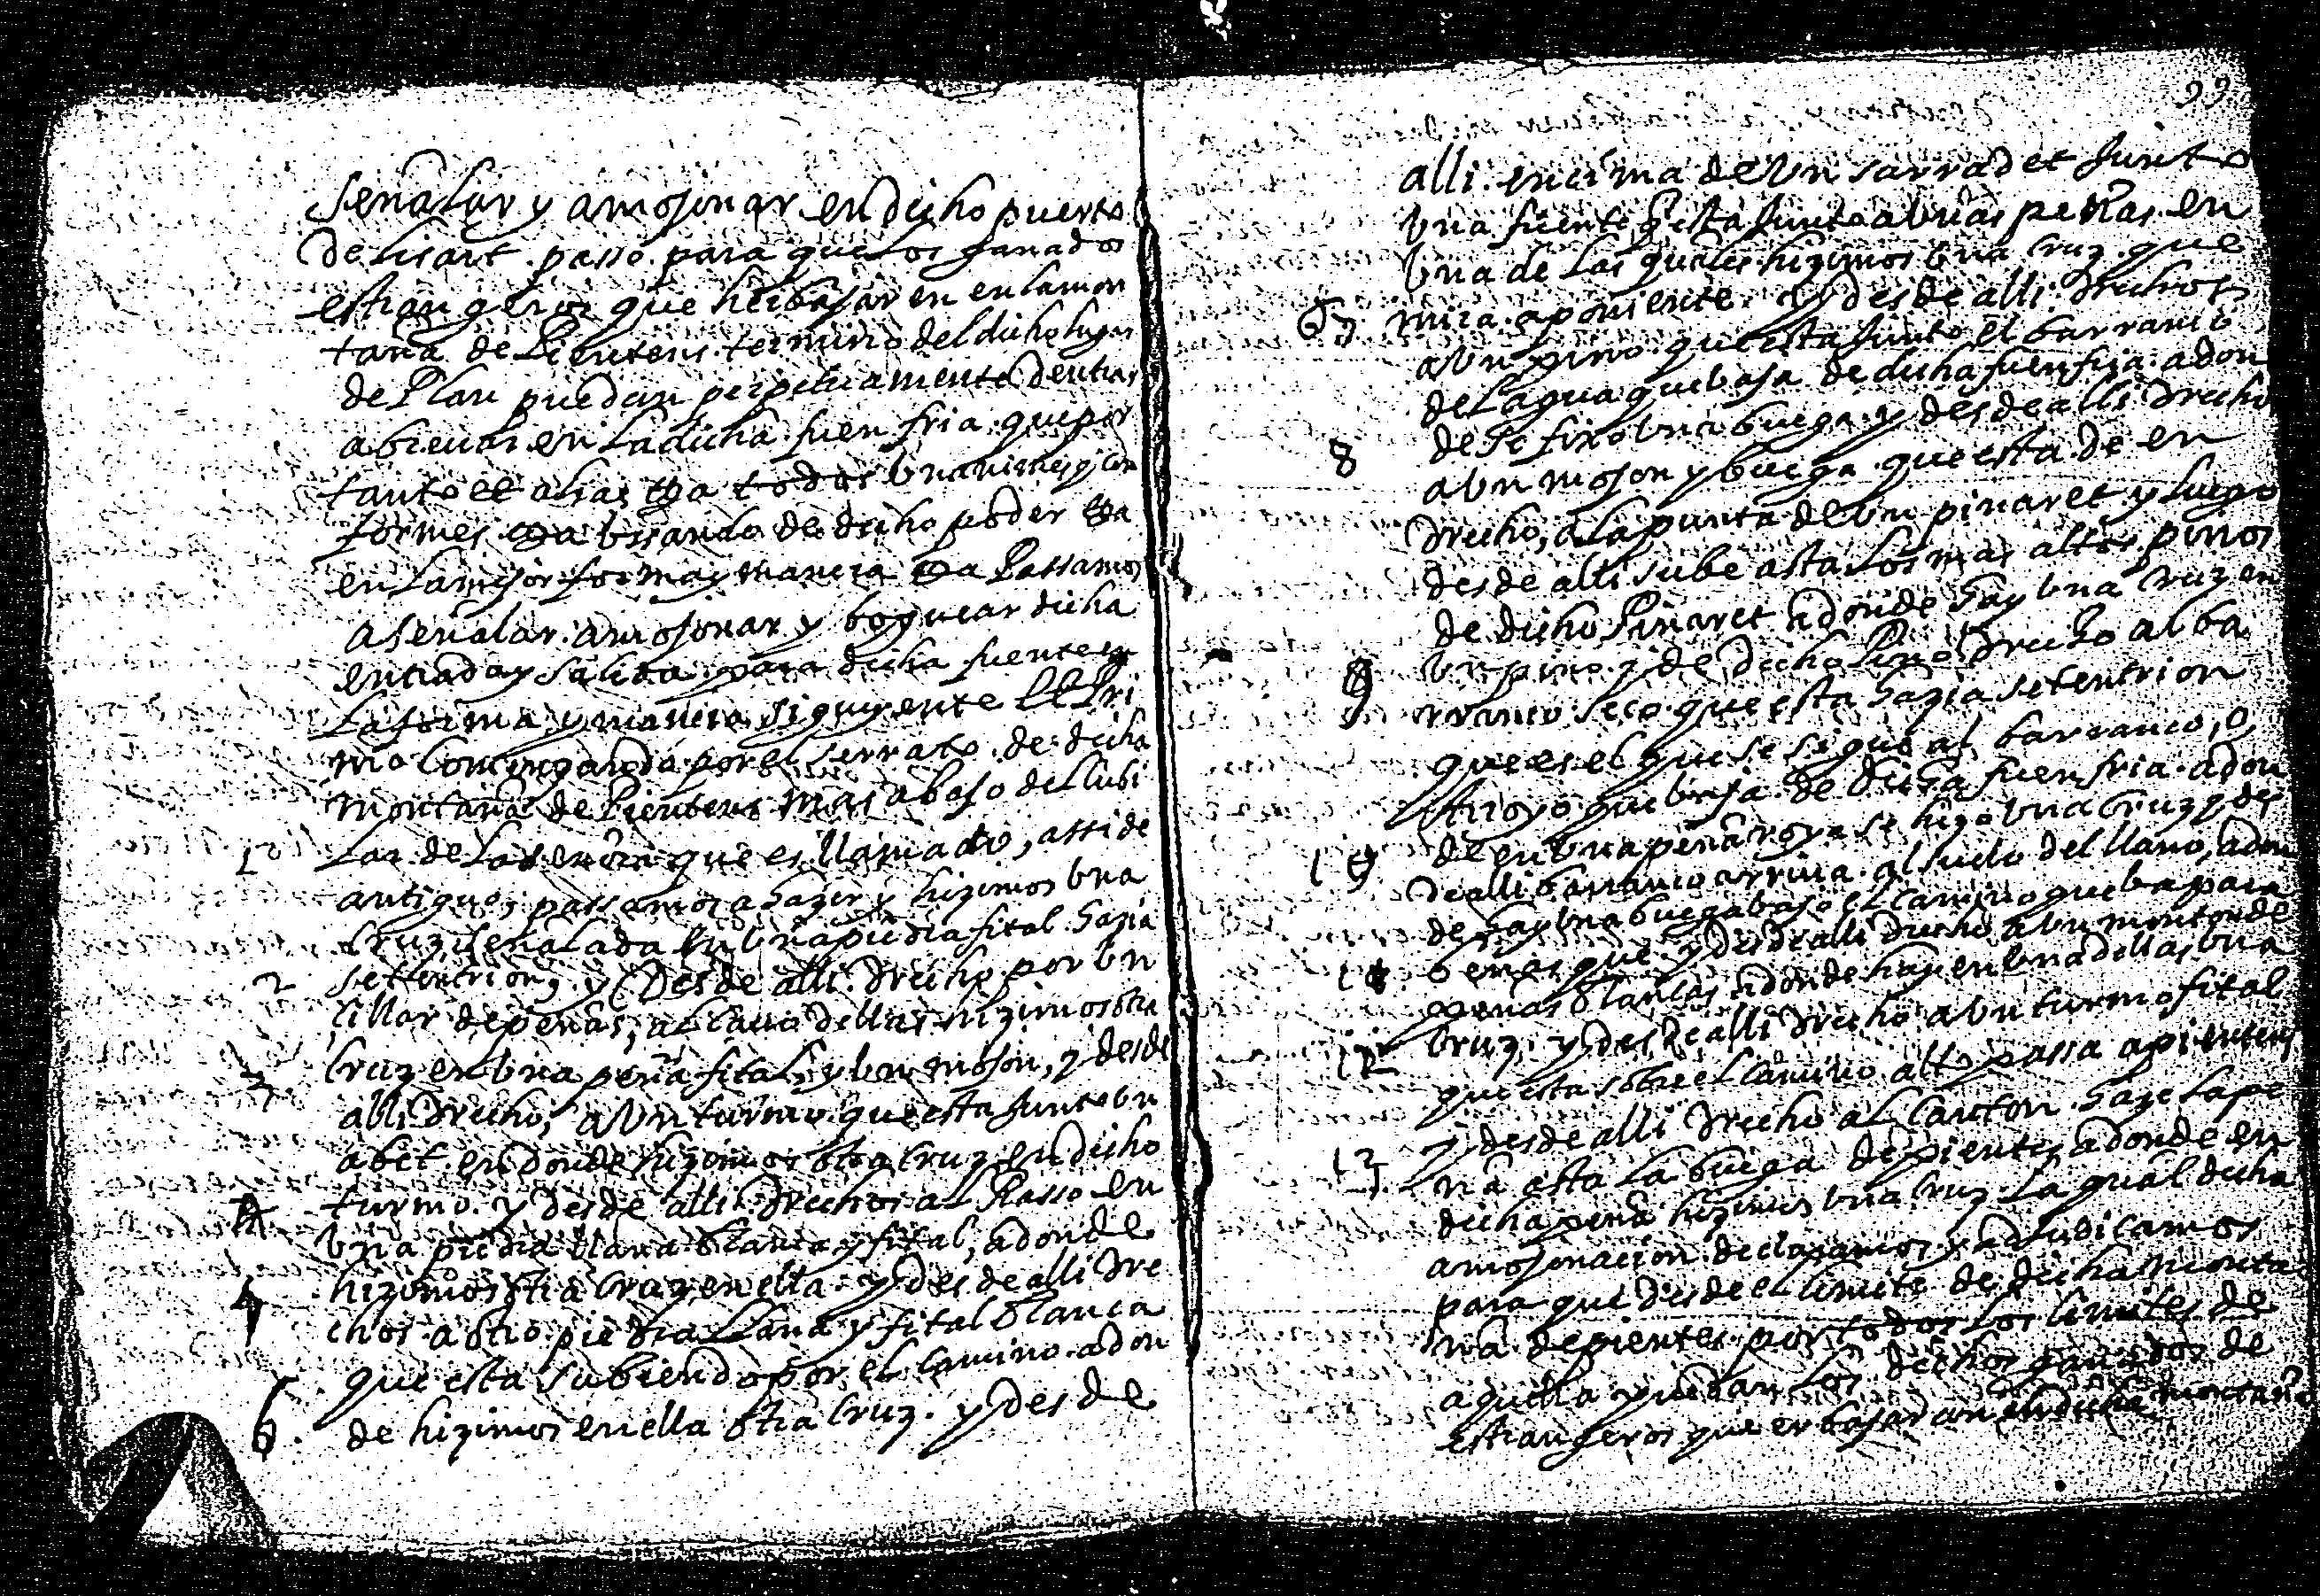 señalar y amojonar en dicho puerto
de lisart passo para que los ganados
estrangeros que herbajaren en la mon
taña de Pientens termino del dicho lugar
de Plan puedan perpetuamente dentrar
a brevar en la dicha fuen fria que por
tanto et alias todos unanimes y con
formes usando de dicho poder
en la mejor forma y manera Passamos
a señalar amojonar y boguear dicha
entrada y salida para dicha fuente en
la forma y manera siguiente Et Pri
mo por el serrato de dicha
montaña de Pientens mas abajo del cubi
1 lar de que es llamado, assi de
antiguo, passamos a hazer y hizimos una
Cruz señalada en una piedra fital hazia
2 settentrion, y Desde alli drecho por un
Cillar de peñas, al cabo dellas hizimos otra
3 Cruz en una peña fital, y un mojon, y desde
alli drecho, a un turmo que esta junto un
abet en donde hizimos otra cruz en dicho
4 turmo. y desde alli drechos al Passo en
una piedra llana blanca y fital, adonde
5 hizimos otra Cruz en ella. y desde alli dre
chos a otro piedra llana y fital blanca
que esta subiendo por el camino adon
6 de hizimos en ella otra Cruz. y desde
99
alli encima de un sarradet junto
una fuente q esta junto a unas peñas en
una de las quales hizimos una cruz que
7 mira a poniente. y desde alli drechos
a un pino que esta junto el barranco
del agua que baja de dicha fuen fria adon
8 de se fixo una buega y desde alli drecho
a un mojon y buega que esta de en
drecho, a la punta de un pinaret y luego
desde alli sube asta los mas altos pinos
de dicho Pinaret adonde hay una Cruz en
9 un pino y de dicho Pino drecho al ba
rranco seco que esta hazia setentrion
que es el que se sigue al barranco, o
Arroyo que baja de dicha fuen fria adon
10 de en una peña roya se hizo una Cruz y des
de alli barranco arriva al suelo del llano, adon
de hay una buega bajo el camino que ba para
11 benasque y desde alli drecho a un monton de
peñas blancas adonde hay en una dellas una
12 Cruz y desde alli drecho a un turmo fital
que esta sobre el camino alto passa a pientens
13 y desde alli drecho al Canton haze la pe
ña asta la buega de pientes adonde en
dicha peña hizimos una Cruz La qual dicha
amojonacion declaramos y adjudicamos
para que desde el limite de dicha monta
ña de pientes por todos los limites de
aquella puedan los dichos ganados de
estrangeros que erbajaran en dicha montaña